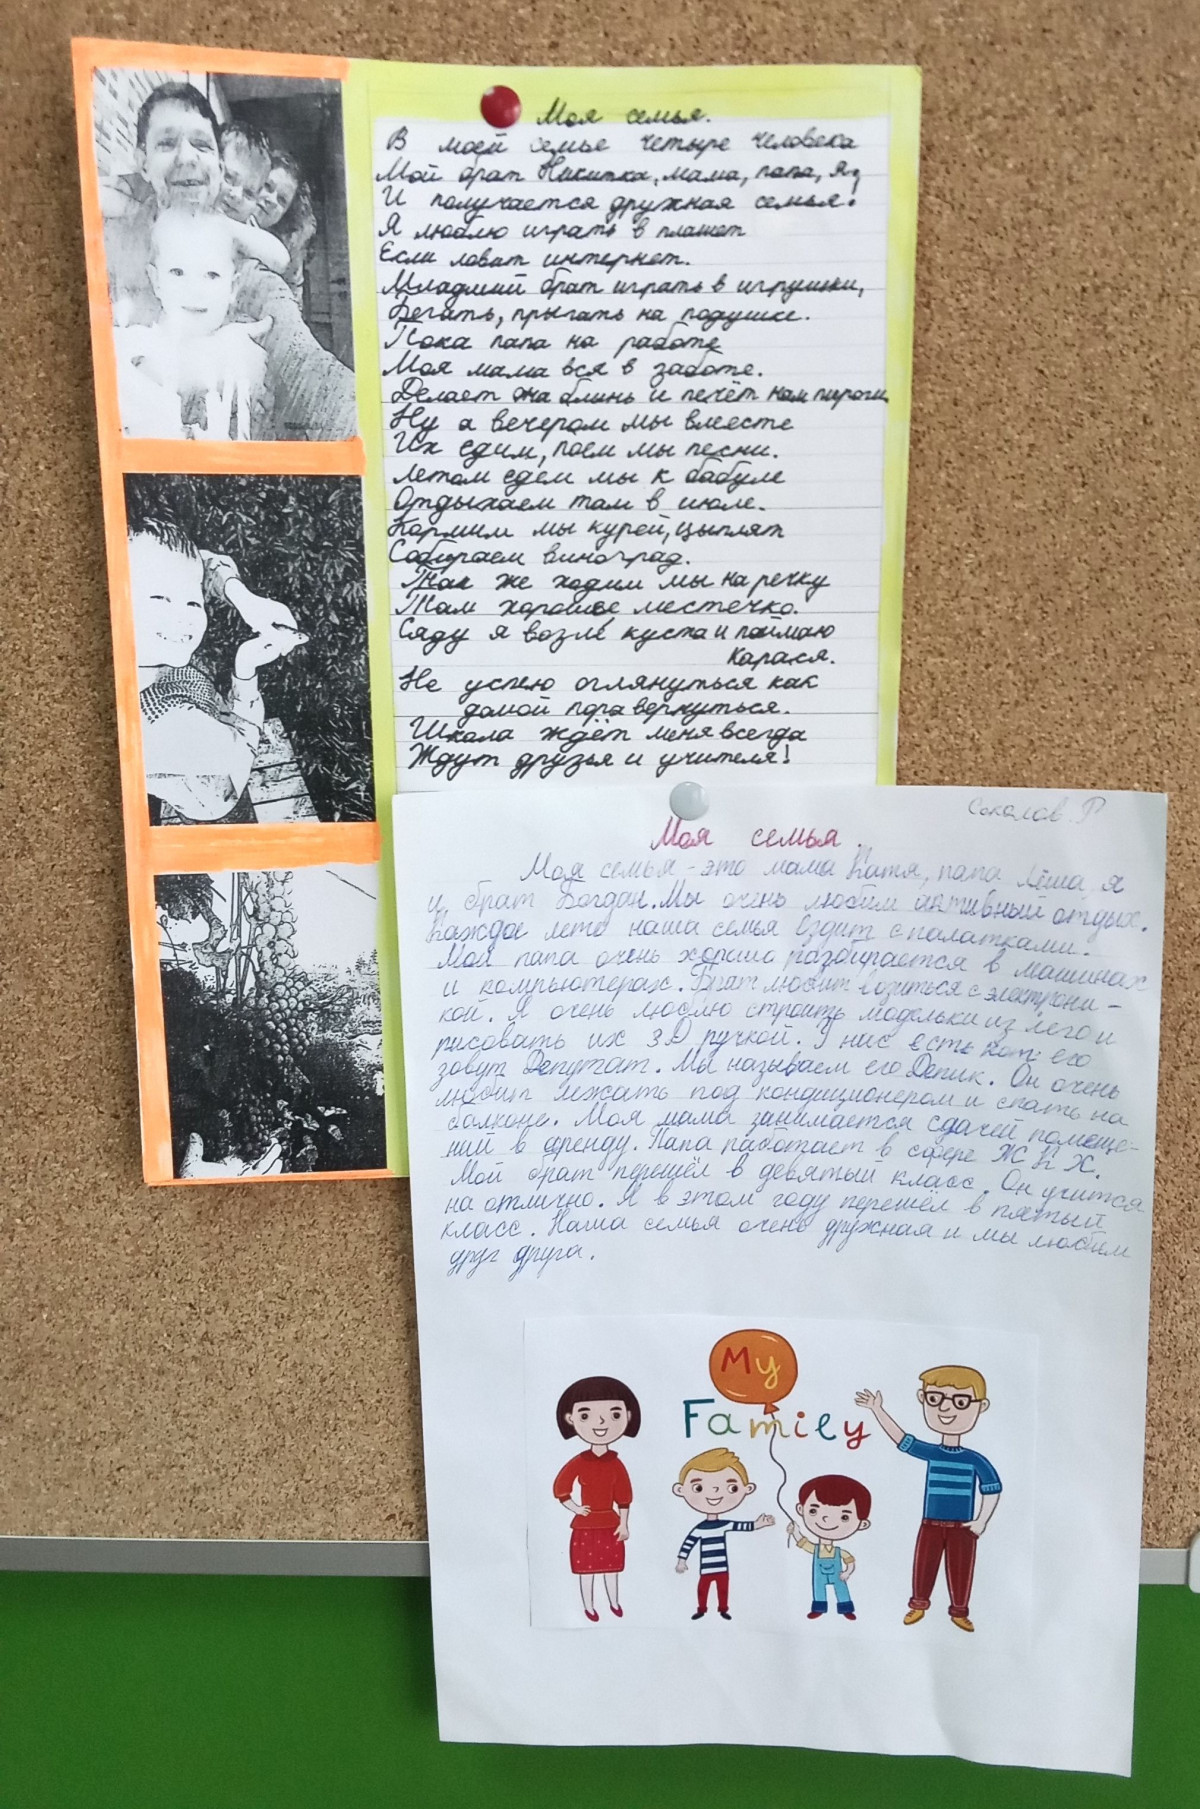 Моя семья.
В моей семье четыре человека
Мой брат Никитка, мама, папа, я,
И получается дружная семья.
Я люблю играть в планшет
Если ловит интернет.
Младший брат играть в игрушки,
Бегать, прыгать на подушке.
Пока папа на работе
Моя мама вся в заботе.
Делает она блины и печёт нам пироги
Ну а вечером мы вместе
Их едим, поём мы песни.
Летом едем мы к бабуле
Отдыхаем там в июле.
Кормим мы курей, цыплят
Собираем виноград.
Так же ходим мы на речку
Там хорошее местечко.
Сяду я возле куста и поймаю
карася.
Не успею оглянуться как
домой пора вернуться.
Школа ждёт меня всегда
Ждут друзья и учителя!
Соколов Р
Моя семья
Моя семья - это мама Катя, папа Лёша, я
и брат Богдан. Мы очень любим активный отдых.
Каждое лето наша семья ездит с палатками.
Мой папа очень хорошо разбирается в машинах
и компьютерах. Брат любит возиться с электрони-
кой. Я очень люблю строить модельки из лего и
рисовать их 3D ручкой. У нас есть кот его
зовут Депутат. Мы называем его Депик. Он очень
любит лежать под кондиционером и спать на
балконе. Моя мама занимается сдачей помеще-
ний в аренду. Папа работает в сфере ЖКХ.
Мой брат перешёл в девятый класс. Он учится
на отлично. Я в этом году перешёл в пятый
класс. Наша семья очень дружная и мы любим
друг друга.
My
Family